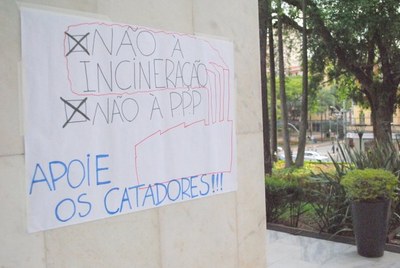 NÃO A
INCINERAÇÃO
NÃO A PPP
APOIE
OS CATADORES!!!